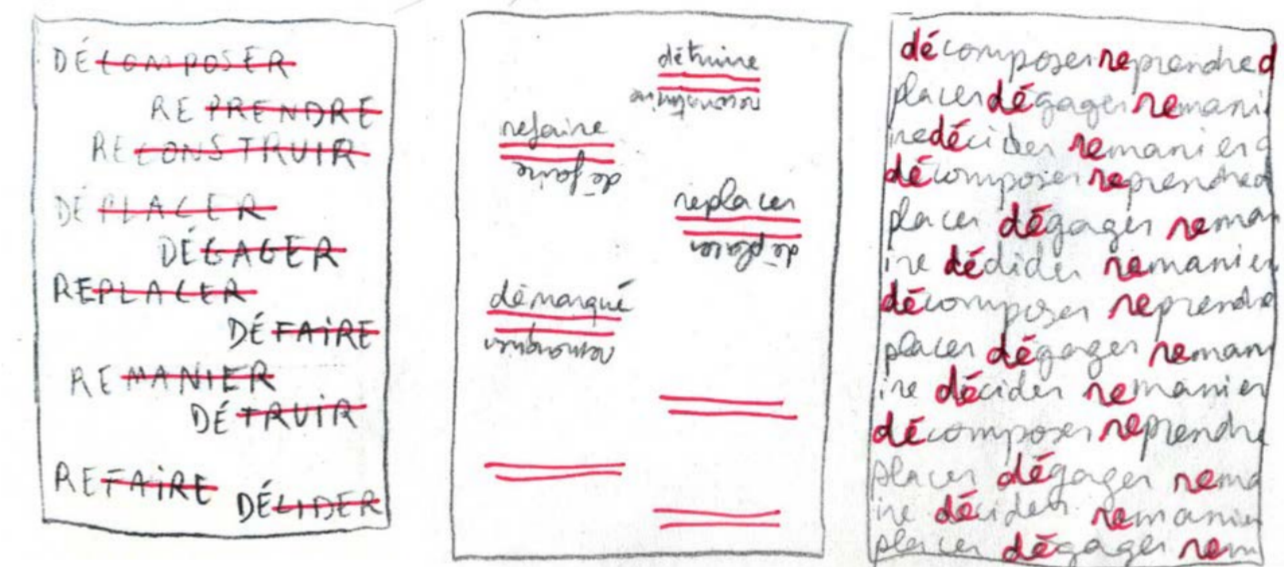 DÉCOMPOSER
REPRENDRE
RECONSTRUIR
DÉPLACER
DÉGAGER
REPLACER
DÉFAIRE
REMANIER
DÉTRUIR
REFAIRE DÉCIDER
détruire
refaire
défaire
replacer
déplacer
démarqué
remarquer
décomposer reprendre d
placer dégager remani
re décider remanier d
décomposer reprendre d
placer dégager reman
ire dédider remanier
décomposer reprendre
placer dégager reman
ire décider remanier
décomposer reprendre
placer dégager rema
ire décider remanier
placer dégager rem